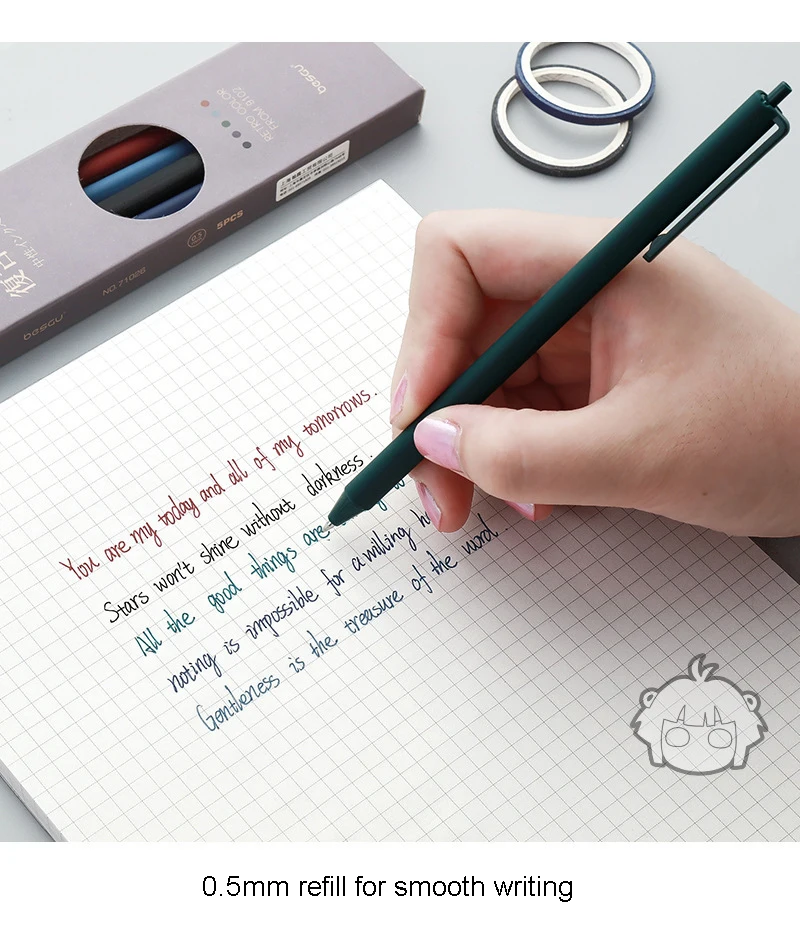 besgu
RETRO COLOR
FROM 8102
0.5
5PCS
復古
中性インク
NO.71026
besgu
You are my today and all of my tomorrows.
Stars won't shine without darkness.
All the good things are
noting is impossible for a willing h
Gentleness is the treasure of the word.
0.5mm refill for smooth writing